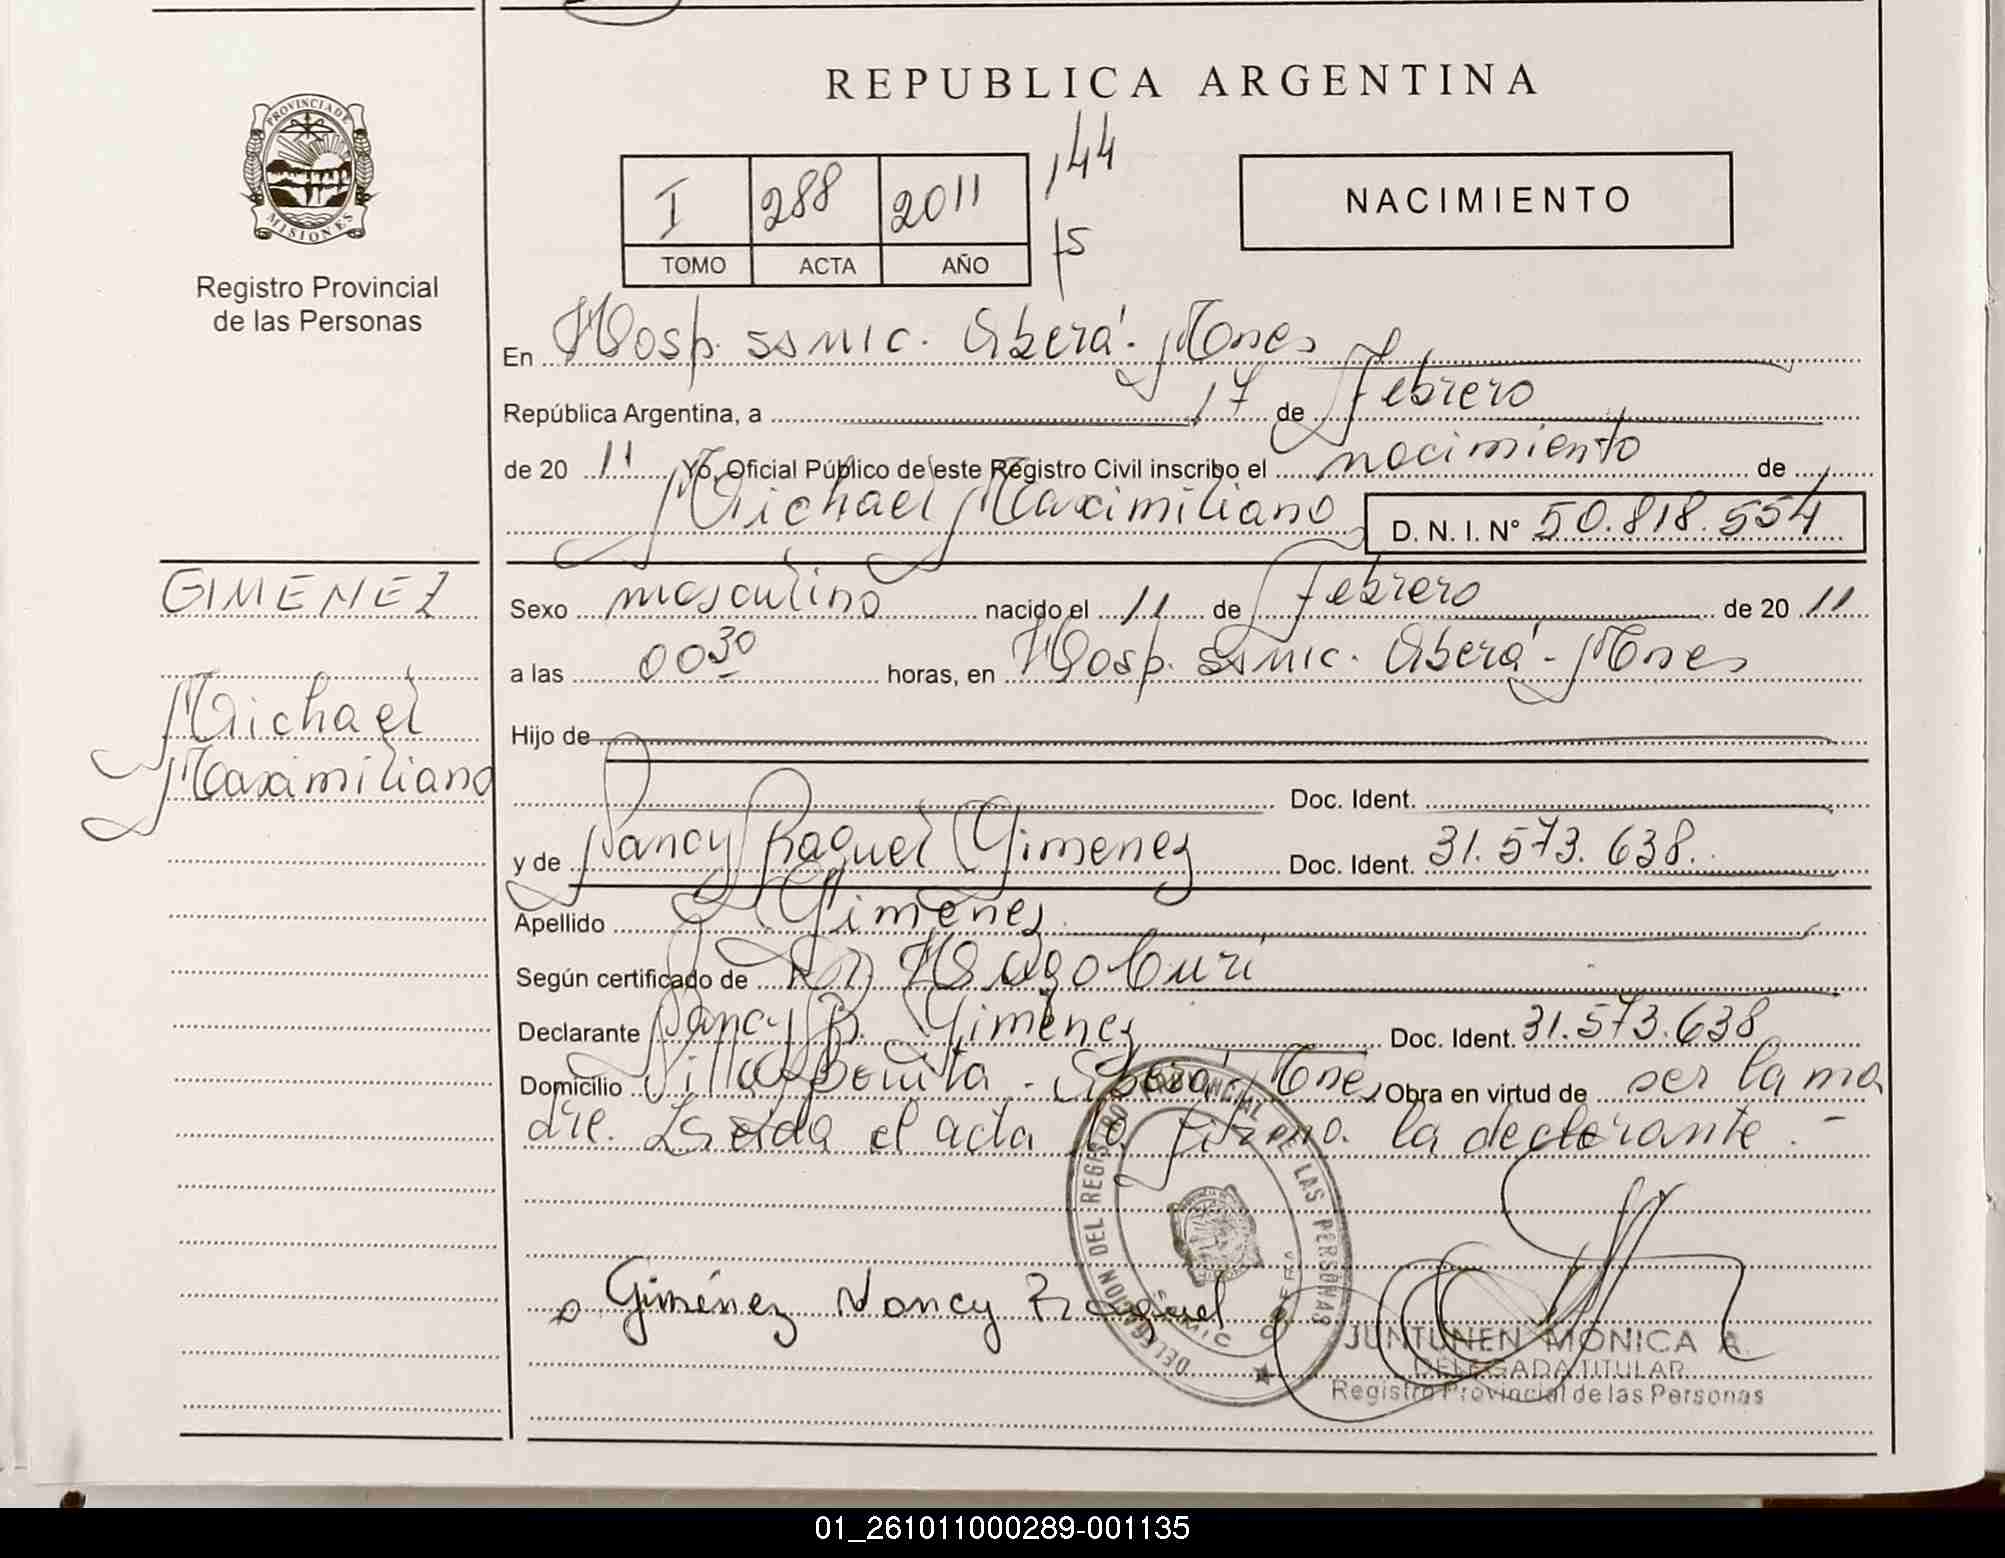 REPUBLICA ARGENTINA
PROVINCIA DE
MISIONES
Registro Provincial
de las Personas
I 288 2011 144
TOMO ACTA AÑO 15
NACIMIENTO
En Hosp. SSMIC. Oberá - Mnes
República Argentina, a 17 de Febrero
de 20 11 Yo, Oficial Público de este Registro Civil inscribo el nacimiento de
Michael Maximiliano D. N. I. Nº 50.818.554
GIMENEZ
Michael
Maximiliano
Sexo masculino nacido el 11 de Febrero de 20 11
a las 00 30 horas, en Hosp. SSMIC. Oberá - Mnes
Hijo de
Doc. Ident.
y de Nancy Raquel Gimenez Doc. Ident. 31.573.638.
Apellido Gimenez
Según certificado de
Declarante Nancy R. Gimenez Doc. Ident. 31.573.638
Domicilio Villa Bonita - Oberá - Mnes Obra en virtud de ser la ma
dre. Leida el acta la firma la declarante. -
DELEGACION DEL REGISTRO PROVINCIAL DE LAS PERSONAS
SAMIC OBERA
Giménez Nancy Raquel
JUNTUNEN MONICA A.
DELEGADA TITULAR
Registro Provincial de las Personas
01_261011000289-001135